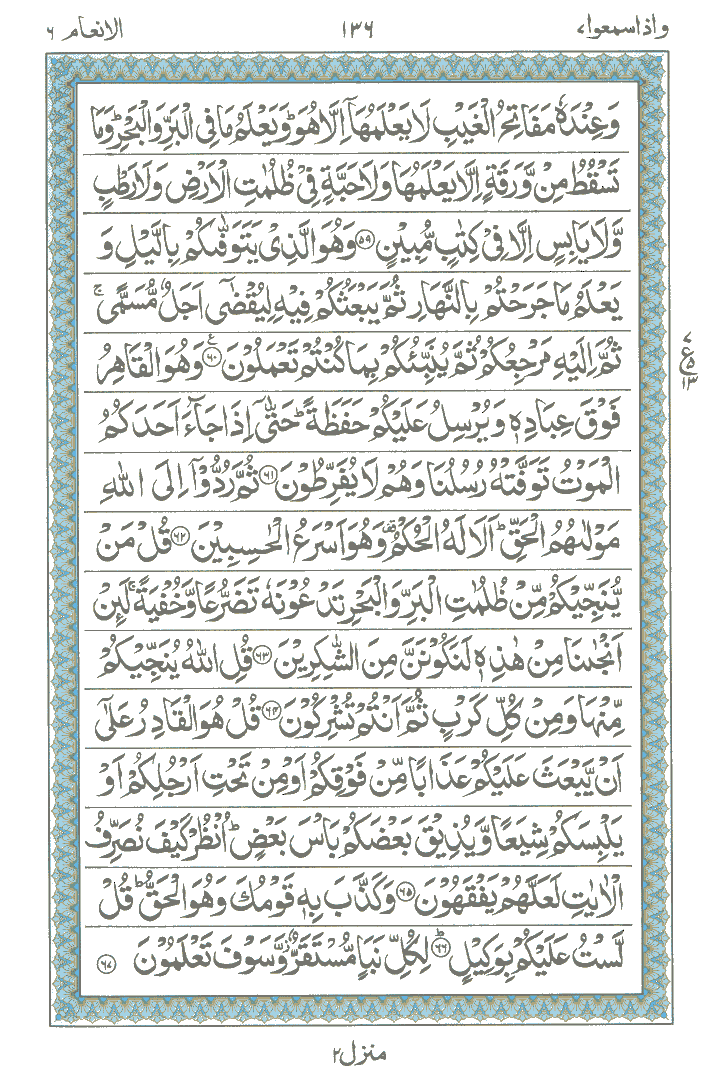 الانعام ٦ ١٣٦ واذاسمعوا٧
وَعِنْدَهٗ مَفَاتِحُ الْغَيْبِ لَا يَعْلَمُهَاۤ اِلَّا هُوَؕ وَيَعْلَمُ مَا فِى الْبَرِّ وَالْبَحْرِؕ وَمَا
تَسْقُطُ مِنْ وَّرَقَةٍ اِلَّا يَعْلَمُهَا وَلَا حَبَّةٍ فِىْ ظُلُمٰتِ الْاَرْضِ وَلَا رَطْبٍ
وَّلَا يَابِسٍ اِلَّا فِىْ كِتٰبٍ مُّبِيْنٍ ٥٩ وَهُوَ الَّذِىْ يَتَوَفّٰٮكُمْ بِالَّيْلِ وَ
يَعْلَمُ مَا جَرَحْتُمْ بِالنَّهَارِ ثُمَّ يَبْعَثُكُمْ فِيْهِ لِيُقْضٰٓى اَجَلٌ مُّسَمًّىۚ
ثُمَّ اِلَيْهِ مَرْجِعُكُمْ ثُمَّ يُنَبِّئُكُمْ بِمَا كُنْتُمْ تَعْمَلُوْنَ ٦٠ وَهُوَ الْقَاهِرُ
فَوْقَ عِبَادِهٖ وَيُرْسِلُ عَلَيْكُمْ حَفَظَةًؕ حَتّٰٓى اِذَا جَآءَ اَحَدَكُمُ
الْمَوْتُ تَوَفَّتْهُ رُسُلُنَا وَهُمْ لَا يُفَرِّطُوْنَ ٦١ ثُمَّ رُدُّوْۤا اِلَى اللّٰهِ
مَوْلٰٮهُمُ الْحَقِّؕ اَلَا لَهُ الْحُكْمُ وَهُوَ اَسْرَعُ الْحٰسِبِيْنَ ٦٢ قُلْ مَنْ
يُّنَجِّيْكُمْ مِّنْ ظُلُمٰتِ الْبَرِّ وَالْبَحْرِ تَدْعُوْنَهٗ تَضَرُّعًا وَّخُفْيَةًۚ لَئِنْ
اَنْجٰٮنَا مِنْ هٰذِهٖ لَنَكُوْنَنَّ مِنَ الشّٰكِرِيْنَ ٦٣ قُلِ اللّٰهُ يُنَجِّيْكُمْ
مِّنْهَا وَمِنْ كُلِّ كَرْبٍ ثُمَّ اَنْتُمْ تُشْرِكُوْنَ ٦٤ قُلْ هُوَ الْقَادِرُ عَلٰٓى
اَنْ يَّبْعَثَ عَلَيْكُمْ عَذَابًا مِّنْ فَوْقِكُمْ اَوْ مِنْ تَحْتِ اَرْجُلِكُمْ اَوْ
يَلْبِسَكُمْ شِيَعًا وَّيُذِيْقَ بَعْضَكُمْ بَاْسَ بَعْضٍؕ اُنْظُرْ كَيْفَ نُصَرِّفُ
الْاٰيٰتِ لَعَلَّهُمْ يَفْقَهُوْنَ ٦٥ وَكَذَّبَ بِهٖ قَوْمُكَ وَهُوَ الْحَقُّؕ قُلْ
لَّسْتُ عَلَيْكُمْ بِوَكِيْلٍؕ ٦٦ لِكُلِّ نَبَاٍ مُّسْتَقَرٌّ وَّسَوْفَ تَعْلَمُوْنَ ٦٧
٧
ع
٥
١٣
منزل ٢